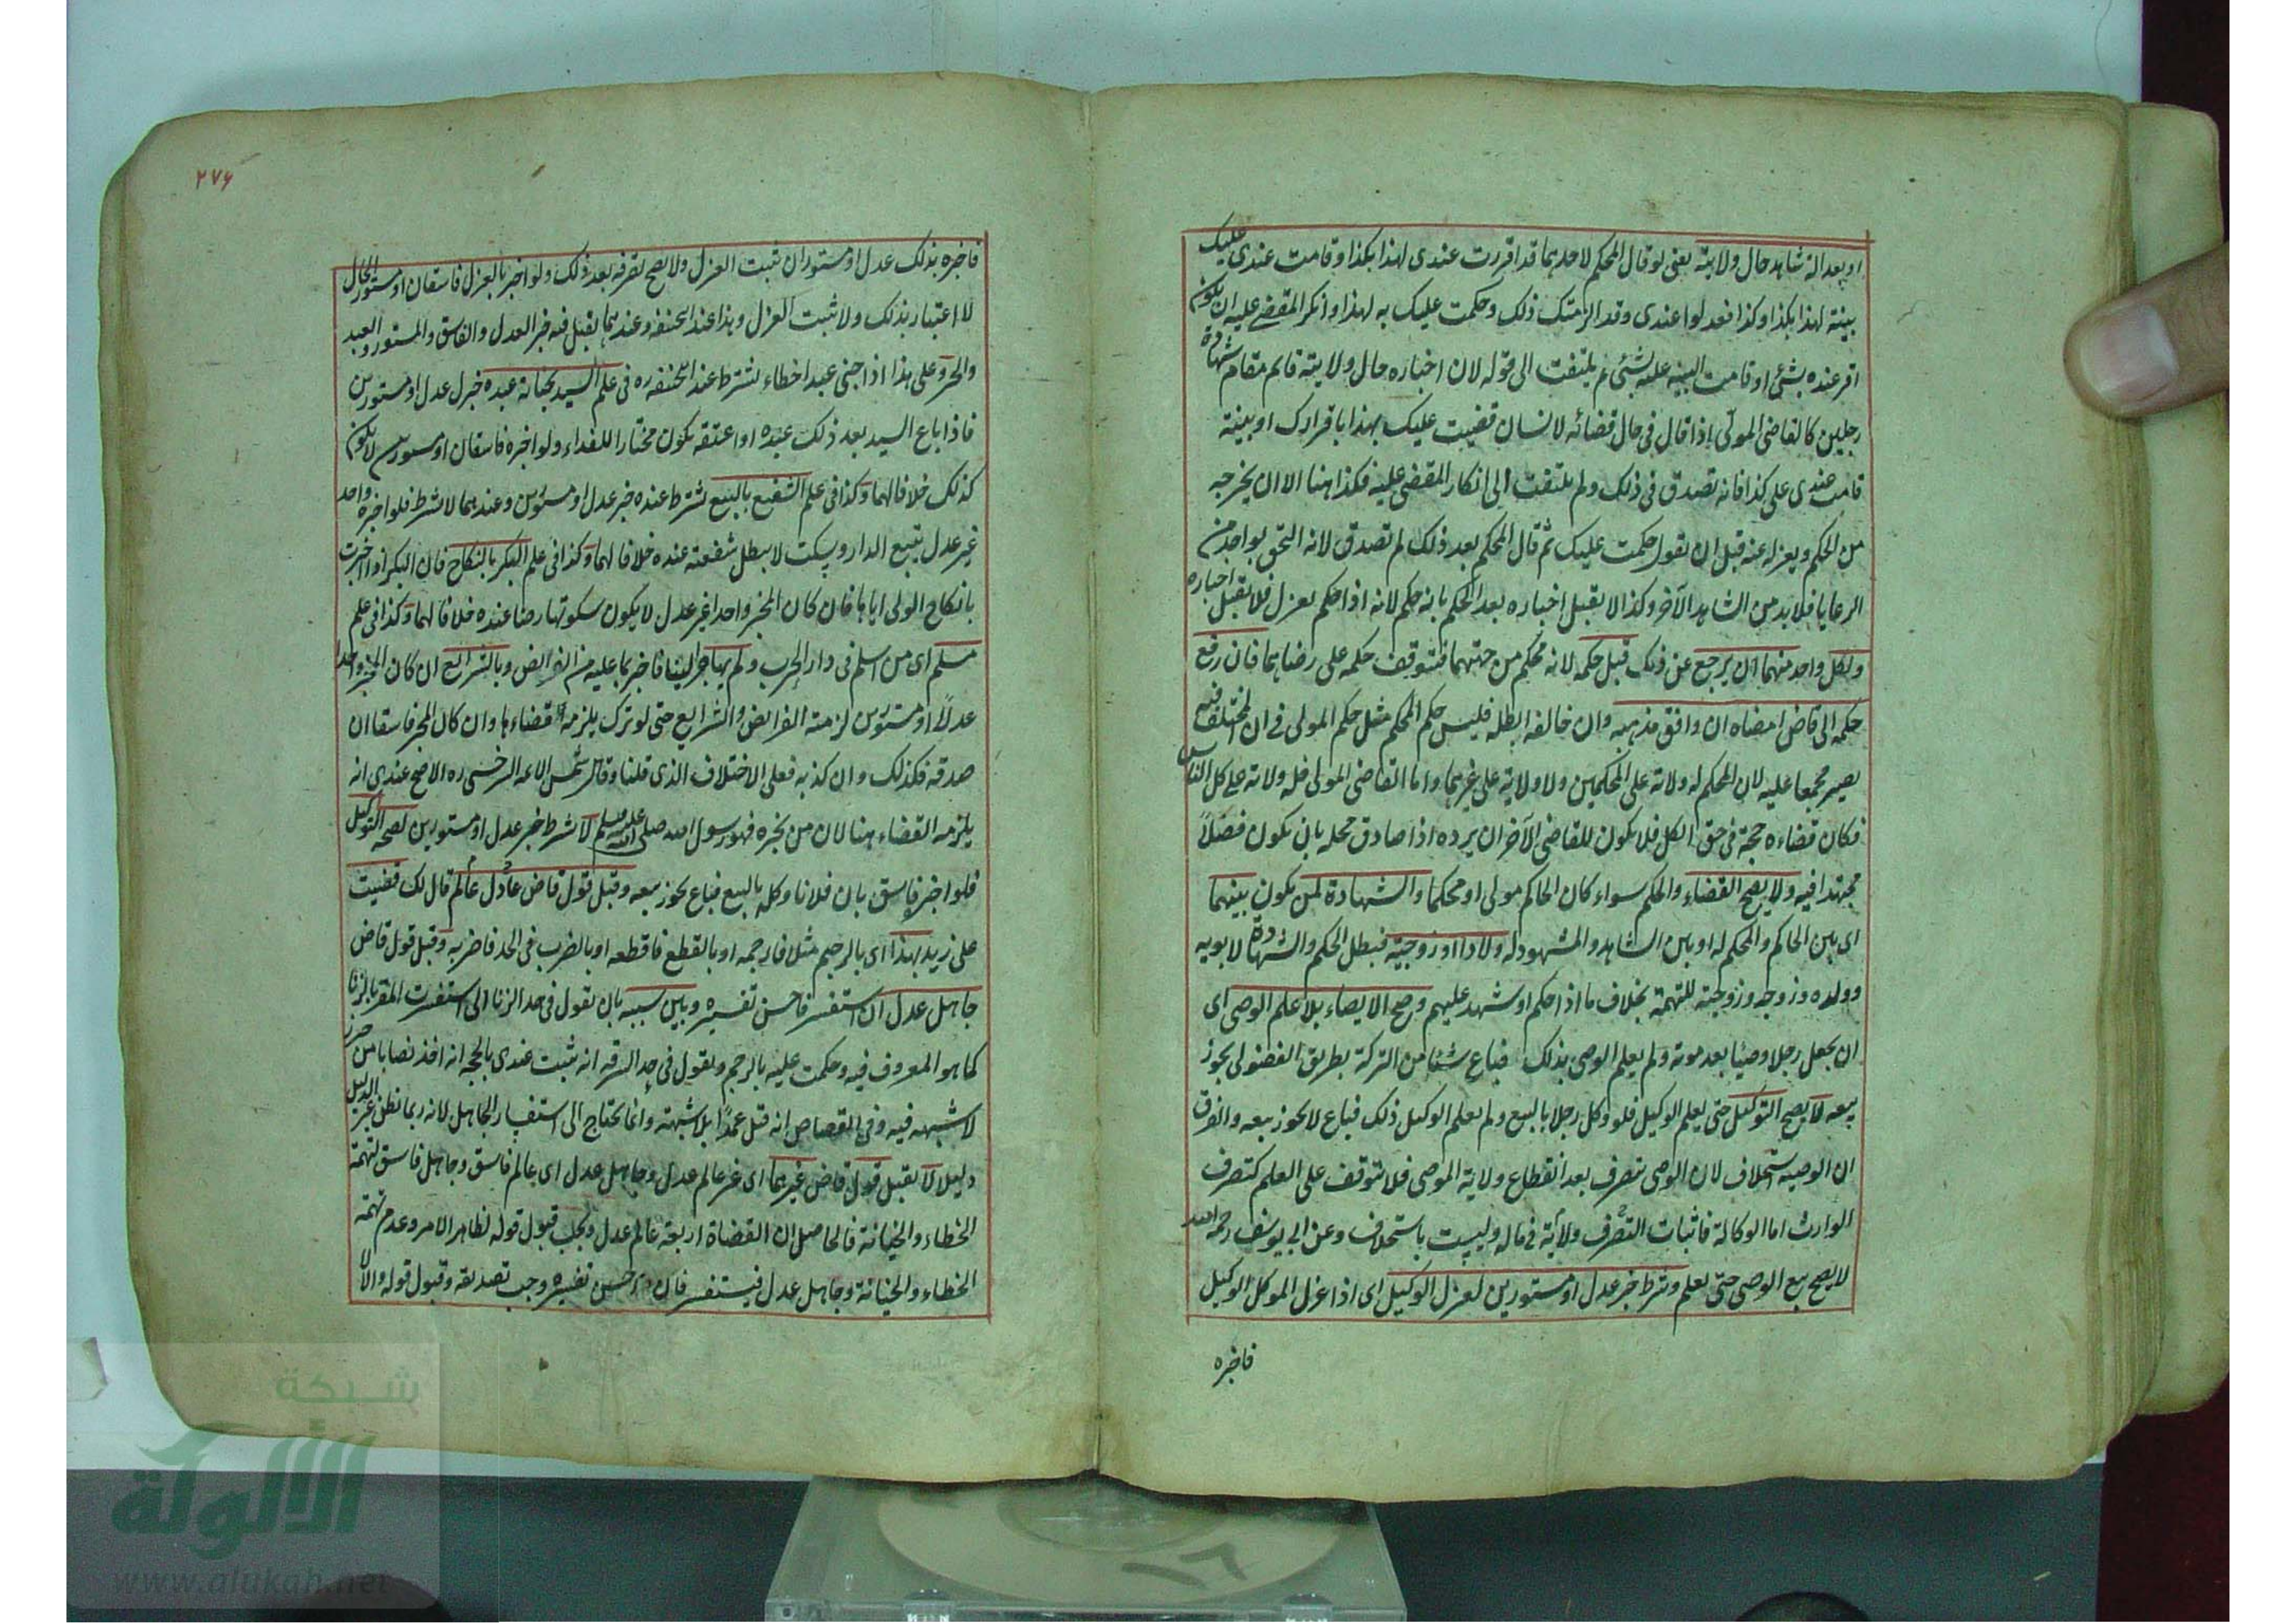 او بعدالة شاهد حال ولايته يعنى لو قال المحكم لاحدهما قد اقررت عندى لهذا بكذا وقامت عندى عليك
بينة لهذا بكذا وكذا فعدلوا عندى وقد الزمتك ذلك وحكمت عليك به لهذا وانكر المقضى عليه ان يكون
اقر عنده بشئ او قامت البينة عليه بشئ لم يلتفت الى قوله لان اخباره حال ولايته قايم مقام شهادة
رجلين كالقاضى المولّى اذا قال فى حال قضائه لانسان قضيت عليك بهذا باقرارك او ببينة
قامت عندى على كذا فانه يصدق فى ذلك ولم يلتفت الى انكار المقضى عليه فكذا هنا الا ان يخرجه
من الحكم ويعزله عنه قبل ان يقول حكمت عليك ثم قال المحكم بعد ذلك لم تصدق لانه التحق بواحد من
الرعايا فلا بد من الشاهد الآخر وكذا لا يقبل اخباره بعد الحكم بانه حكم لانه اذا حكم يعزل فلا يقبل اخباره
ولكل واحد منهما ان يرجع عن ذلك قبل حكمه لانه محكم من جهتهما فيتوقف حكمه على رضاهما فان رفع
حكمه الى قاض امضاه ان وافق مذهبه وان خالفه ابطله فليس حكم المحكم مثل حكم المولى فى ان المختلف فيه
يصير مجمعا عليه لان المحكم له ولاية على المحكمين ولا ولاية على غيرهما واما القاضى المولى فله ولاية على كل الناس
فكان قضاءه حجة فى حق الكل فلا يكون للقاضى الآخر ان يرده اذا صادق محله بان يكون فصلاً
مجتهدا فيه ولا يصح القضاء والحكم سواء كان الحاكم مولى او محكما والشهادة لمن يكون بينهما
اى بين الحاكم والمحكم له او بين الشاهد والمشهود له ولادا او زوجية فبطل الحكم والشهادة لابويه
وولده وزوجه وزوجته للتهمة بخلاف ما اذا حكم او شهد عليهم وصح الايصاء بلا علم الوصى اى
ان يجعل رجلا وصيّا بعد موته ولم يعلم الوصى بذلك فباع شيئا من التركة بطريق الفضولى يجوز
بيعه لا يصح التوكيل حتى يعلم الوكيل فلو وكل رجلا بالبيع ولم يعلم الوكيل ذلك فباع لا يجوز بيعه والفرق
ان الوصية استخلاف لان الوصى يتصرف بعد انقطاع ولاية الموصى فلا يتوقف على العلم كتصرف
الوارث اما الوكالة فاثبات التصرف ولاية فى ماله وليست باستخلاف وعن ابى يوسف رحمه الله
لا يصح بيع الوصى حتى يعلم وشرط خبر عدل او مستورين لعزل الوكيل اى اذا عزل الموكل الوكيل
فاخبره
٢٧٦
فاخبره بذلك عدل او مستوران ثبت العزل ولا يصح تصرفه بعد ذلك ولو اخبر بالعزل فاسقان او مستور الحال
لا اعتبار بذلك ولا ثبت العزل وهذا عند ابى حنيفه وعندهما يقبل فيه خبر العدل والفاسق والمستور والعبد
والحر وعلى هذا اذا جنى عبد اخطاء يشترط عند ابى حنيفه ره فى علم السيد بجناية عبده خبر عدل او مستورين
فاذا باع السيد بعد ذلك عبده او اعتقه يكون مختارا للفداء ولو اخبره فاسقان او مستورين لا يكون
كذلك خلافا لهما وكذا فى علم الشفيع بالبيع يشترط عنده خبر عدل او مستورين وعندهما لا يشترط فلو اخبره واحد
غير عدل ببيع الدار وسكت لا يبطل شفعته عنده خلافا لهما وكذا فى علم البكر بالنكاح فان البكر اذا اخبرت
بانكاح الولى اياها فان كان المخبر واحدا غير عدل لا يكون سكوتها رضا عنده خلافا لهما وكذا فى علم
مسلم اى من اسلم فى دار الحرب ولم يهاجر الينا فاخبر بما عليه من الفرايض وبالشرايع ان كان المخبر واحدا
عدلاً او مستورين لزمته الفرايض والشرايع حتى لو ترك يلزمه قضاءها وان كان المخبر فاسقا ان
صدقه فكذلك وان كذبه فعلى الاختلاف الذى قلنا وقال شمس الائمه السرخسى ره الاصح عندى انه
يلزمه القضاء هنا لان من يخبره فهو رسول رسول الله صلى الله عليه وسلم لا يشترط خبر عدل او مستورين لصحة التوكيل
فلو اخبر فاسق بان فلانا وكله بالبيع فباع يجوز بيعه وقبل قول قاض عادل عالم قال لك قضيت
على زيد بهذا اى بالرجم مثلا فارجمه او بالقطع فاقطعه او بالضرب فى الحد فاضربه وقبل قول قاض
جاهل عدل ان استفسر فاحسن تفسيره وبين سببه بان يقول فى حد الزنا انى استفسرت المقر بالزنا
كما هو المعروف فيه وحكمت عليه بالرجم ويقول فى حد السرقه انه ثبت عندى بالحجه انه اخذ نصابا من حرز
لا شبهه فيه وفى القصاص انه قتل عمداً بلا شبهة وانما يحتاج الى استفسار الجاهل لانه ربما يظن غير الدليل
دليلا لا يقبل قول قاض غيرهما اى غير عالم عدل وجاهل عدل اى عالم فاسق وجاهل فاسق لتهمة
الخطاء والخيانة فالحاصل ان القضاة اربعة عالم عدل وجب قبول قوله لظاهر الامر وعدم تهمة
الخطاء والخيانة وجاهل عدل فيستفسر فان احسن تفسيره وجب تصديقه وقبول قوله والا لا
شبكة
الألوكة
www.alukah.net